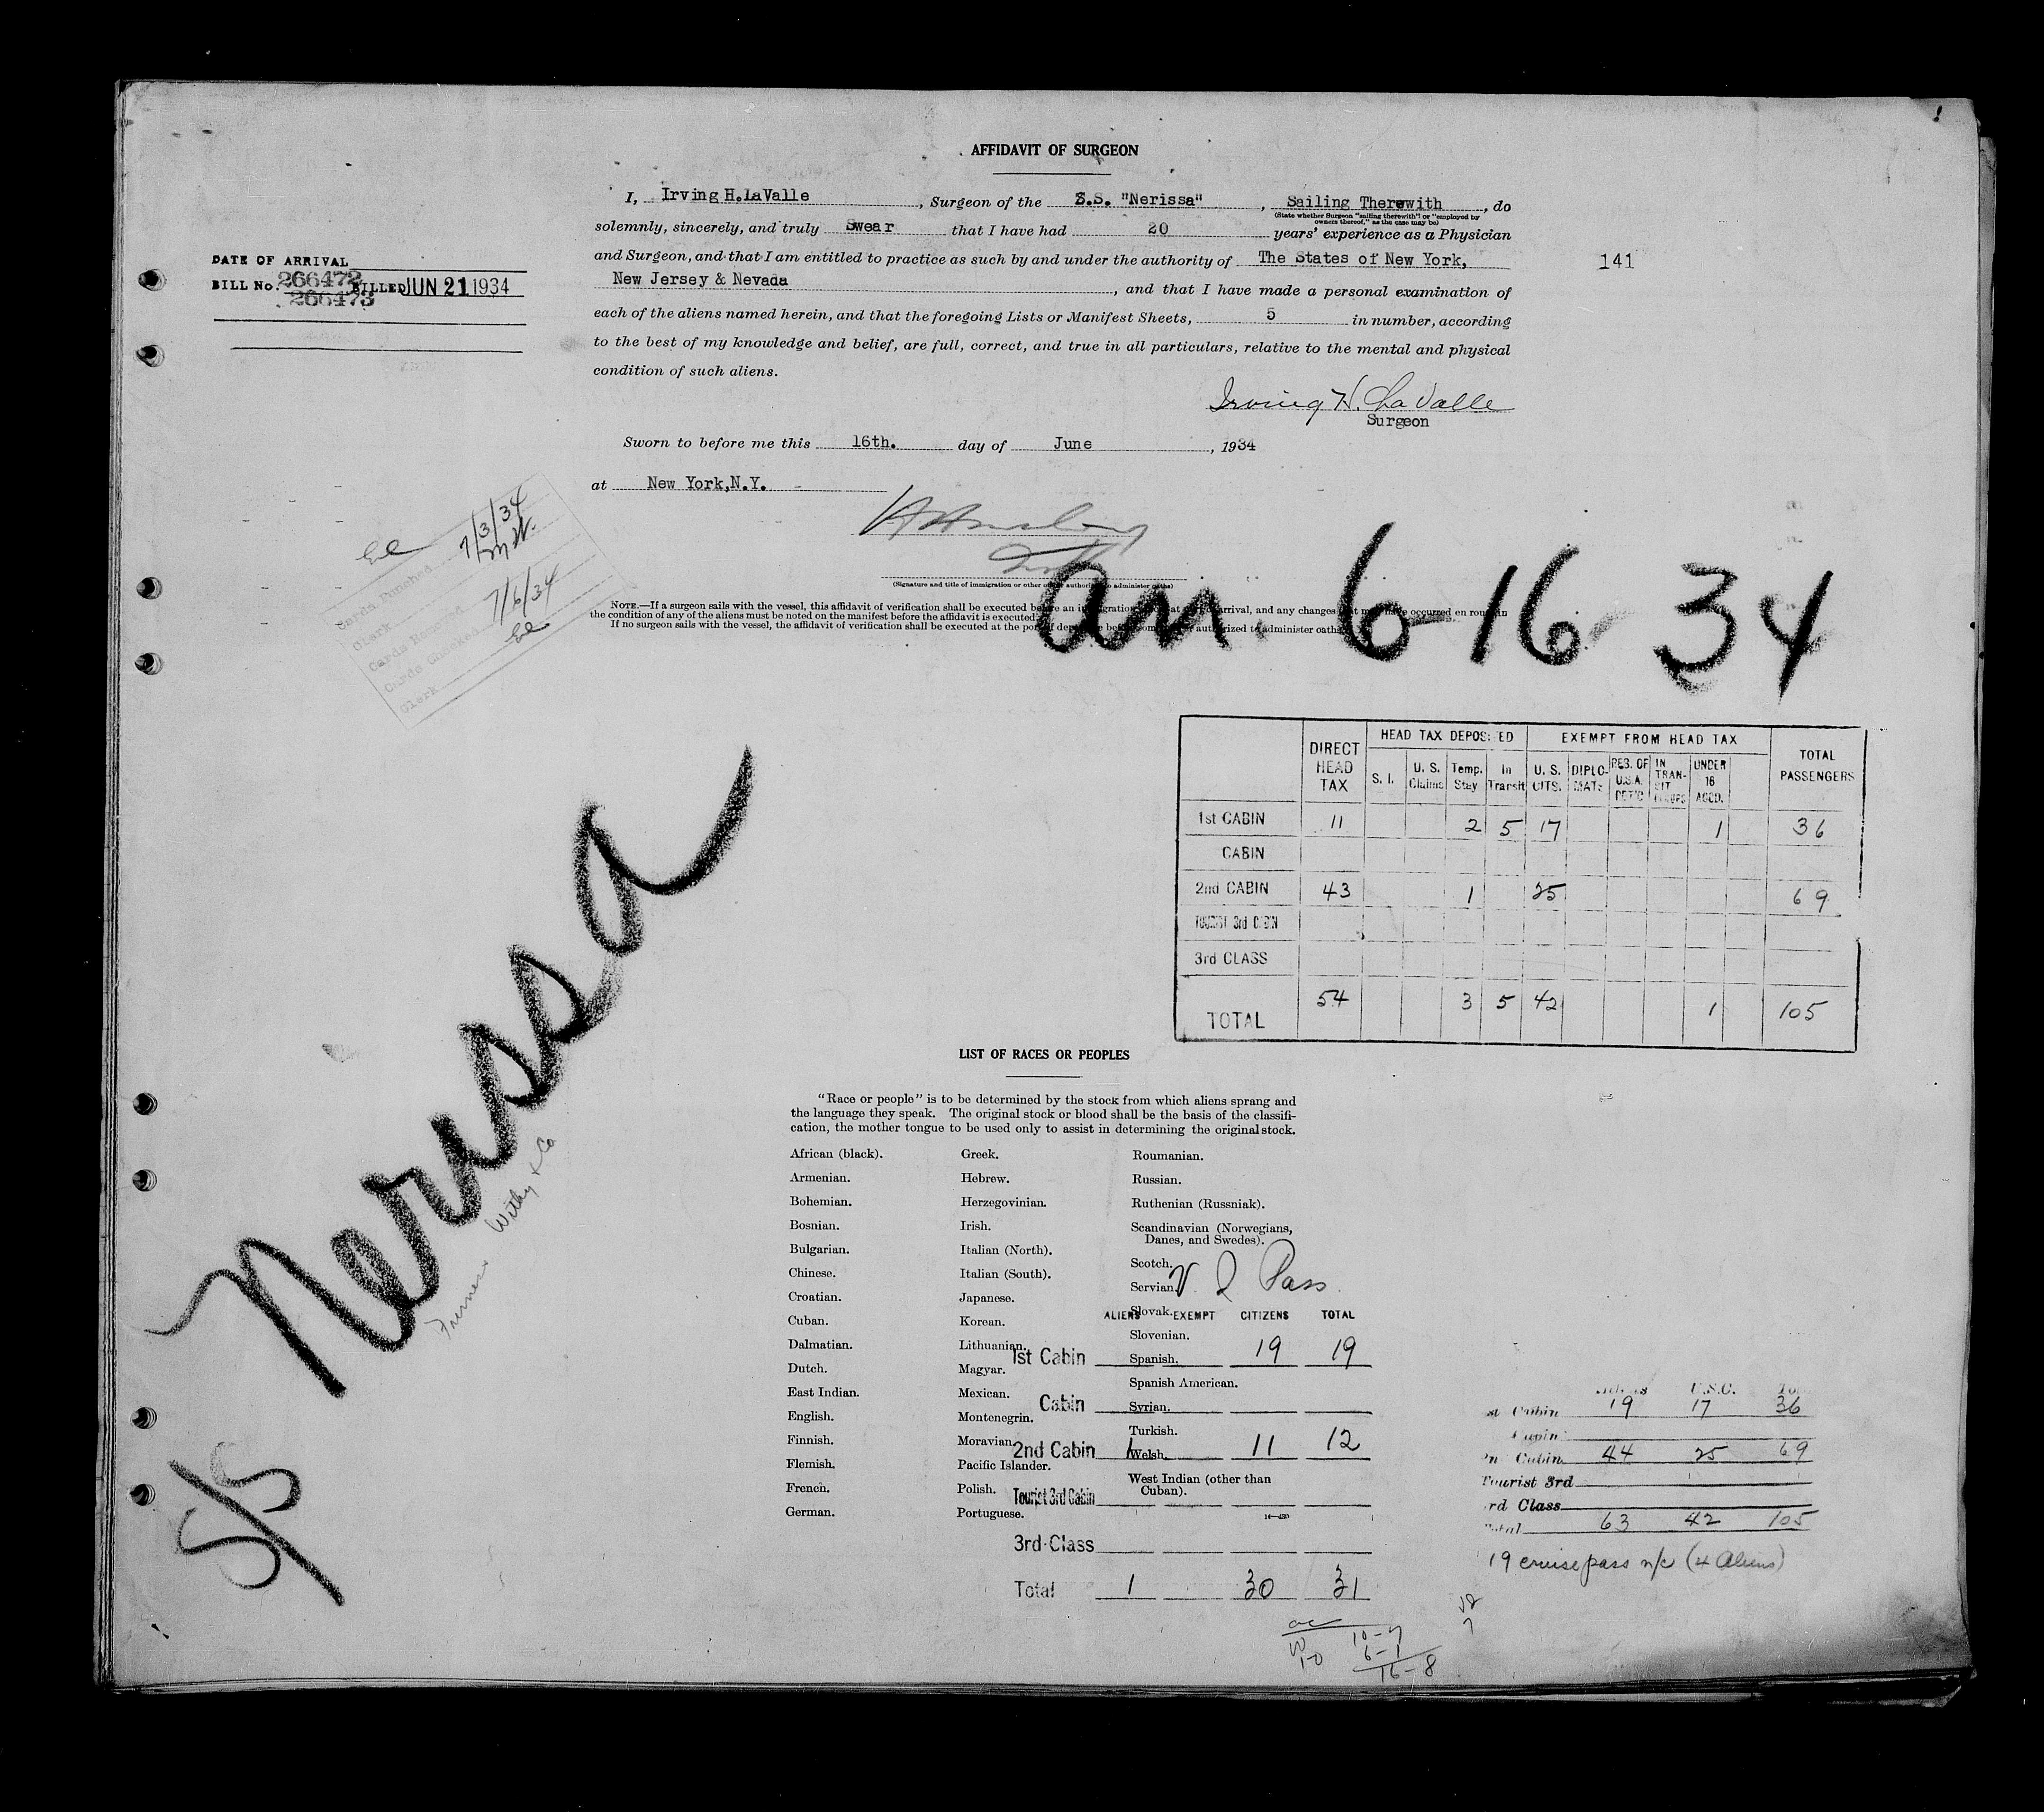 AFFIDAVIT OF SURGEON
I, Irving H. LaValle, Surgeon of the S.S. "Nerissa", Sailing Therewith, do
(State whether Surgeon "sailing therewith" or "employed by owners thereof," as the case may be)
solemnly, sincerely, and truly Swear that I have had 20 years' experience as a Physician
and Surgeon, and that I am entitled to practice as such by and under the authority of The States of New York,
New Jersey & Nevada, and that I have made a personal examination of
each of the aliens named herein, and that the foregoing Lists or Manifest Sheets, 5 in number, according
to the best of my knowledge and belief, are full, correct, and true in all particulars, relative to the mental and physical
condition of such aliens.
DATE OF ARRIVAL
BILL No. 266472 BILLED JUN 21 1934
266473
141
Irving H. LaValle
Surgeon
Sworn to before me this 16th. day of June, 1934
at New York, N.Y.
(Signature and title of immigration or other officer authorized to administer oaths)
NOTE.—If a surgeon sails with the vessel, this affidavit of verification shall be executed before an immigration at arrival, and any changes that may have occurred en route in
the condition of any of the aliens must be noted on the manifest before the affidavit is executed.
If no surgeon sails with the vessel, the affidavit of verification shall be executed at the port of departure before authorized to administer oaths
Cards Punched 7/3/34
Clerk
7/6/34
Clerk
6-16-34
DIRECT HEAD TAX
HEAD TAX DEPOSITED
EXEMPT FROM HEAD TAX
TOTAL PASSENGERS
S. I. U. S. Claims Temp. Stay In Transit U. S. CITS. DIPLOMATS RES. OF U.S.A. RET'G IN TRANSIT UNDER 16 ACCD.
1st CABIN 11 2 5 17 1 36
CABIN
2nd CABIN 43 1 25 69
TOURIST 3rd CABIN
3rd CLASS
TOTAL 54 3 5 42 1 105
S/S Nerissa
Furness Withy & Co
LIST OF RACES OR PEOPLES
"Race or people" is to be determined by the stock from which aliens sprang and
the language they speak. The original stock or blood shall be the basis of the classifi-
cation, the mother tongue to be used only to assist in determining the original stock.
African (black).
Armenian.
Bohemian.
Bosnian.
Bulgarian.
Chinese.
Croatian.
Cuban.
Dalmatian.
Dutch.
East Indian.
English.
Finnish.
Flemish.
French.
German.
Greek.
Hebrew.
Herzegovinian.
Irish.
Italian (North).
Italian (South).
Japanese.
Korean.
Lithuanian.
Magyar.
Mexican.
Montenegrin.
Moravian.
Pacific Islander.
Polish.
Portuguese.
Roumanian.
Russian.
Ruthenian (Russniak).
Scandinavian (Norwegians,
Danes, and Swedes).
Scotch.
Servian.
Slovak.
Slovenian.
Spanish.
Spanish American.
Syrian.
Turkish.
Welsh.
West Indian (other than
Cuban).
V. I Pass.
ALIENS EXEMPT CITIZENS TOTAL
1st Cabin 19 19
Cabin
2nd Cabin 1 11 12
Tourist 3rd Cabin
3rd Class
Total 1 30 31
Aliens U.S.C.
st Cabin 19 17 36
Cabin
Cabin 44 25 69
Tourist 3rd
rd Class
63 42 105
19 cruise pass n/c (4 Aliens)
10-7
6-1
16-8